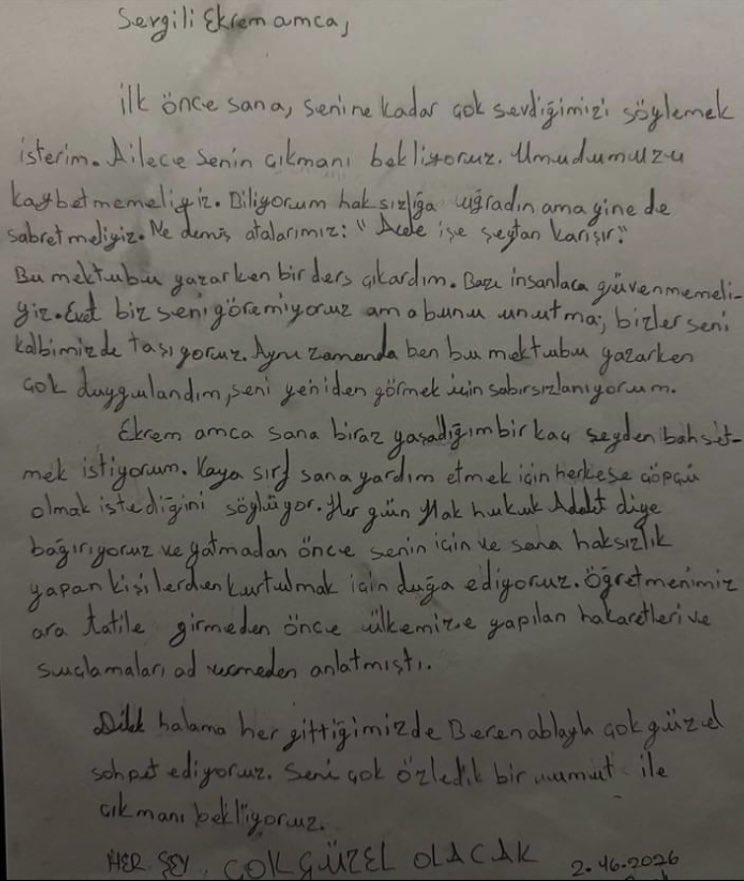 Sergili Ekrem amca,
ilk önce sana, seni ne kadar çok sevdiğimizi söylemek
isterim. Ailece senin çıkmanı bekliyoruz. Umudumuzu
kaybetmemeliyiz. Biliyorum haksızlığa uğradın ama yine de
sabretmeliyiz. Ne demiş atalarımız: "Acele işe şeytan karışır."
Bu mektubu yazarken bir ders çıkardım. Bazı insanlara güvenmemeli-
yiz. Evet biz seni göremiyoruz ama bunu unutma; bizler seni
kalbimizde taşıyoruz. Aynı zamanda ben bu mektubu yazarken
çok duygulandım, seni yeniden görmek için sabırsızlanıyorum.
Ekrem amca sana biraz yaşadığım bir kaç şeyden bahset-
mek istiyorum. Kaya sırf sana yardım etmek için herkese çöpçü
olmak istediğini söylüyor. Her gün Hak hukuk Adalet diye
bağırıyoruz ve yatmadan önce senin için ve sana haksızlık
yapan kişilerden kurtulmak için duğa ediyoruz. Öğretmenimiz
ara tatile girmeden önce ülkemize yapılan hakaretleri ve
suçlamaları ad vermeden anlatmıştı.
Dilek halama her gittiğimizde Beren ablayla çok güzel
sohpet ediyoruz. Seni çok özledik bir umut ile
çıkmanı bekliyoruz.
HER ŞEY ÇOK GÜZEL OLACAK